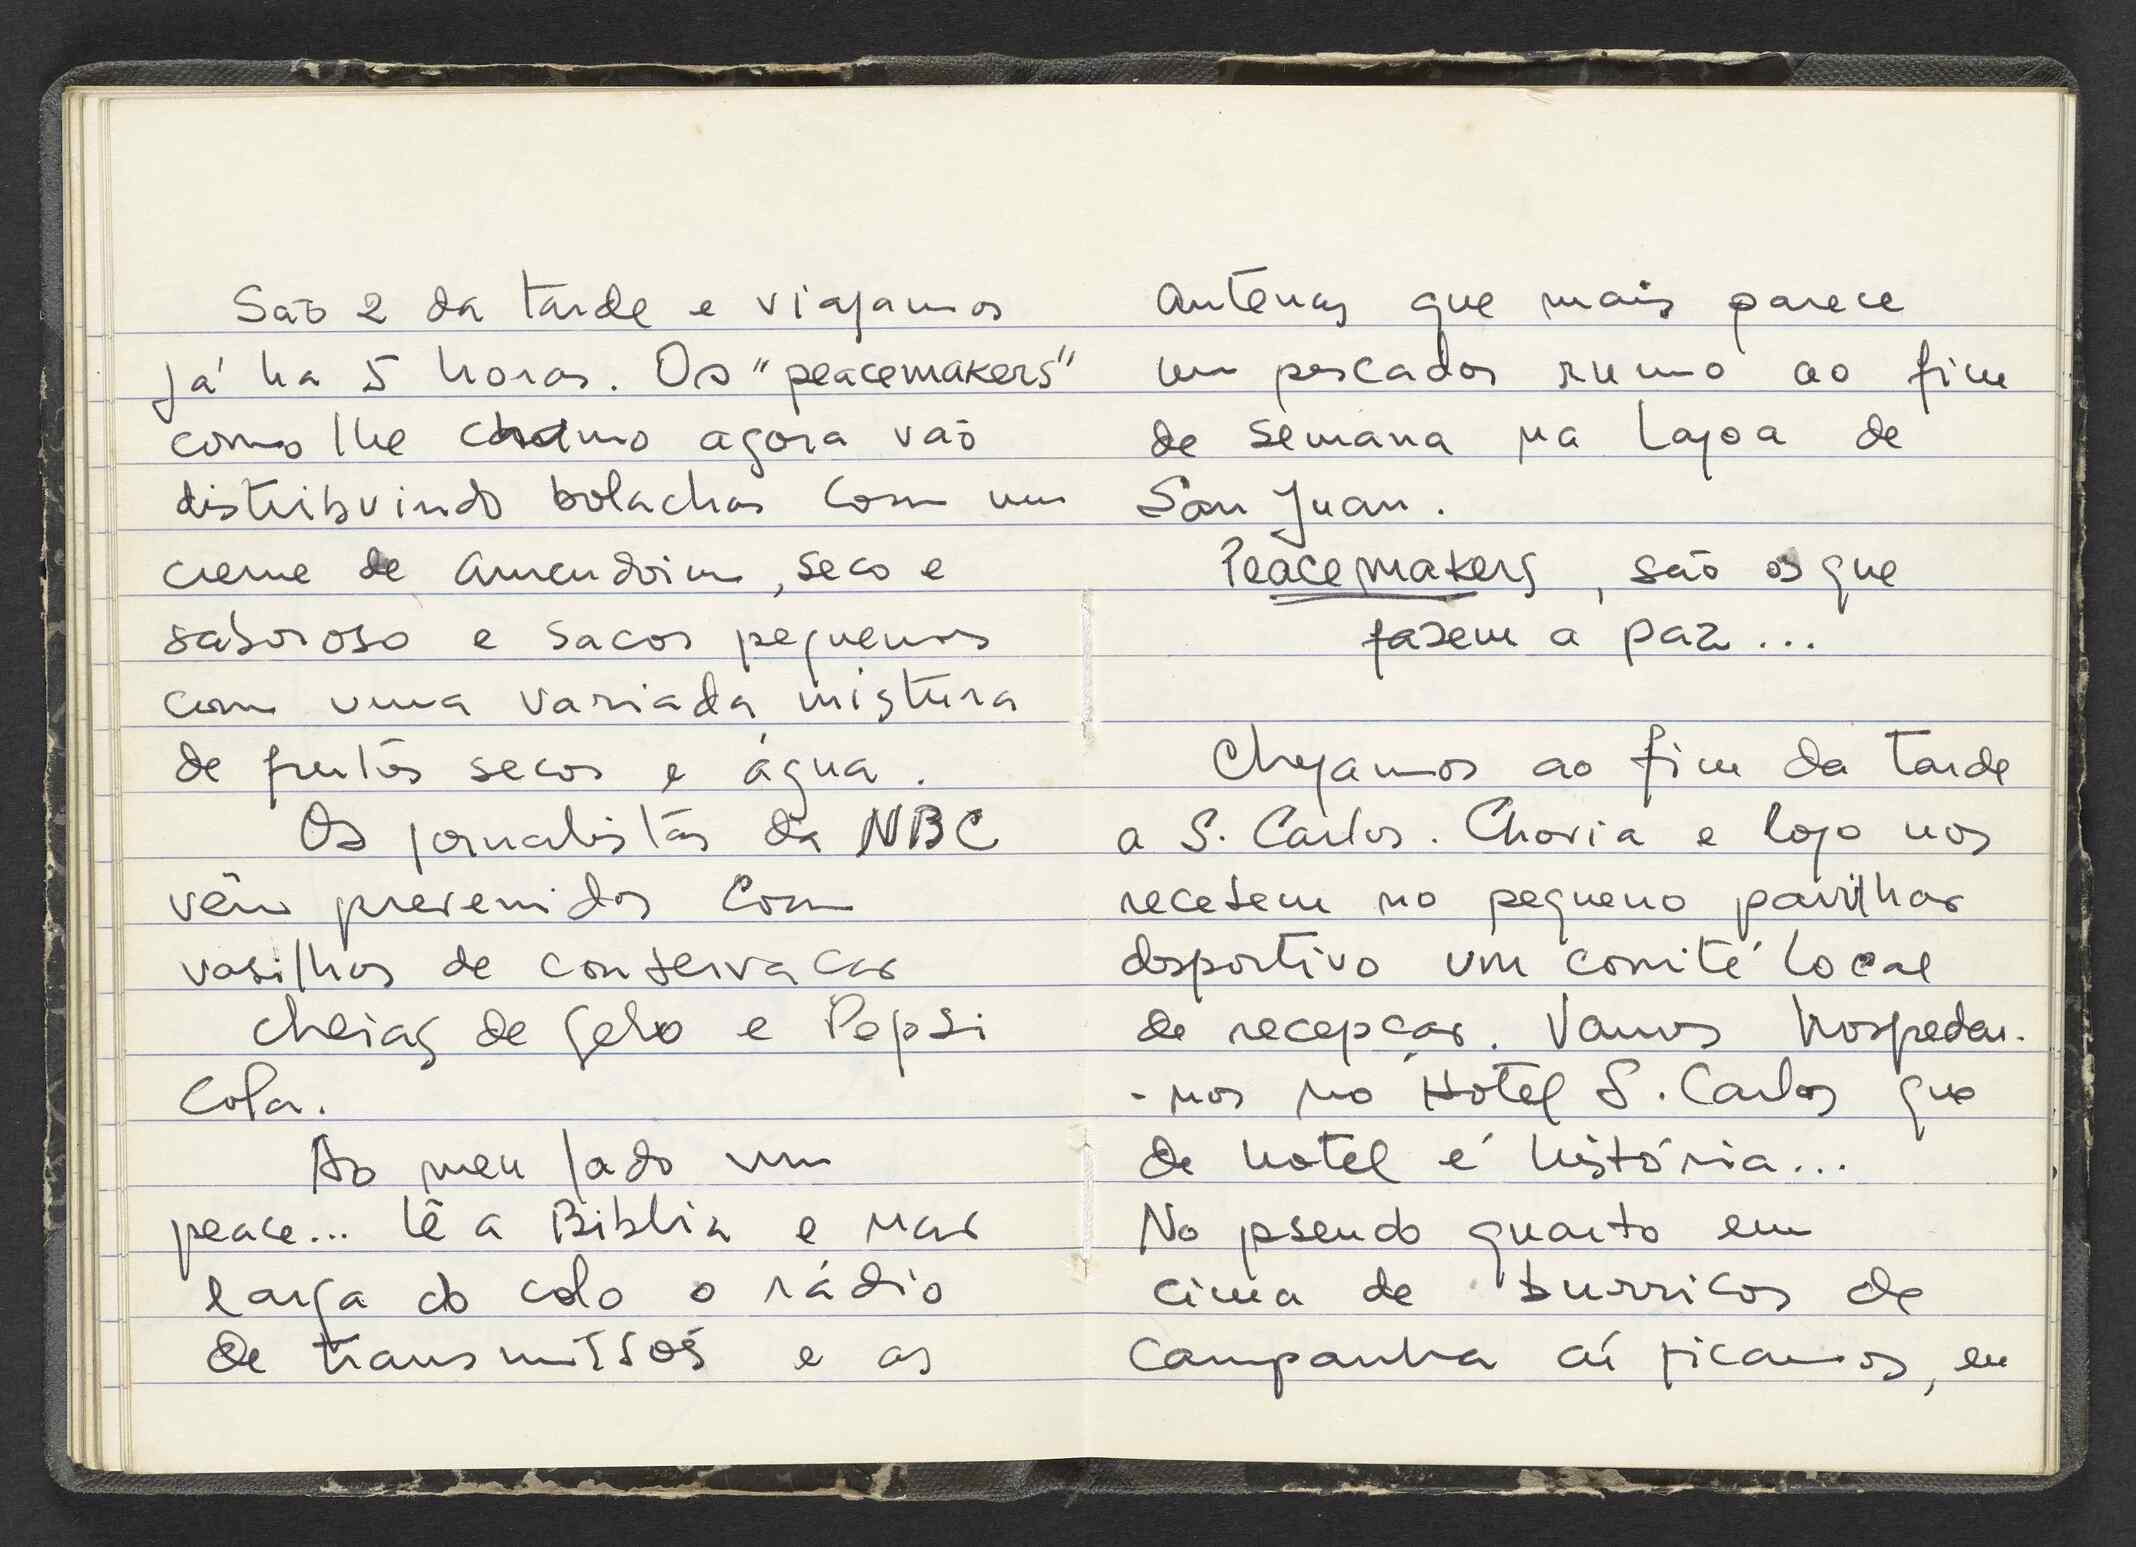 São 2 da tarde e viajamos
já ha 5 horas. Os "peacemakers"
como lhe chamo agora vão
distribuindo bolachas com um
creme de amendoim, seco e
saboroso e sacos pequenos
com uma variada mistura
de frutos secos e água.
Os jornalistas da NBC
vêm prevenidos com
vasilhas de conservacao
cheias de gelo e Pepsi
Cola.
Ao meu lado um
peace... lê a Biblia e nao
larga do colo o rádio
de transmissoẽs e as
antenas que mais parece
um pescador rumo ao fim
de semana na lagoa de
San Juan.
Peacemakers, são os que
fazem a paz...
Chegamos ao fim da tarde
a S. Carlos. Chovia e logo nos
recebem no pequeno pavilhao
desportivo um comité local
de recepçao. Vamos hospedar-
-nos no Hotel S. Carlos que
de hotel é história...
No pseudo quarto em
cima de burricos de
campanha aí ficamos, eu